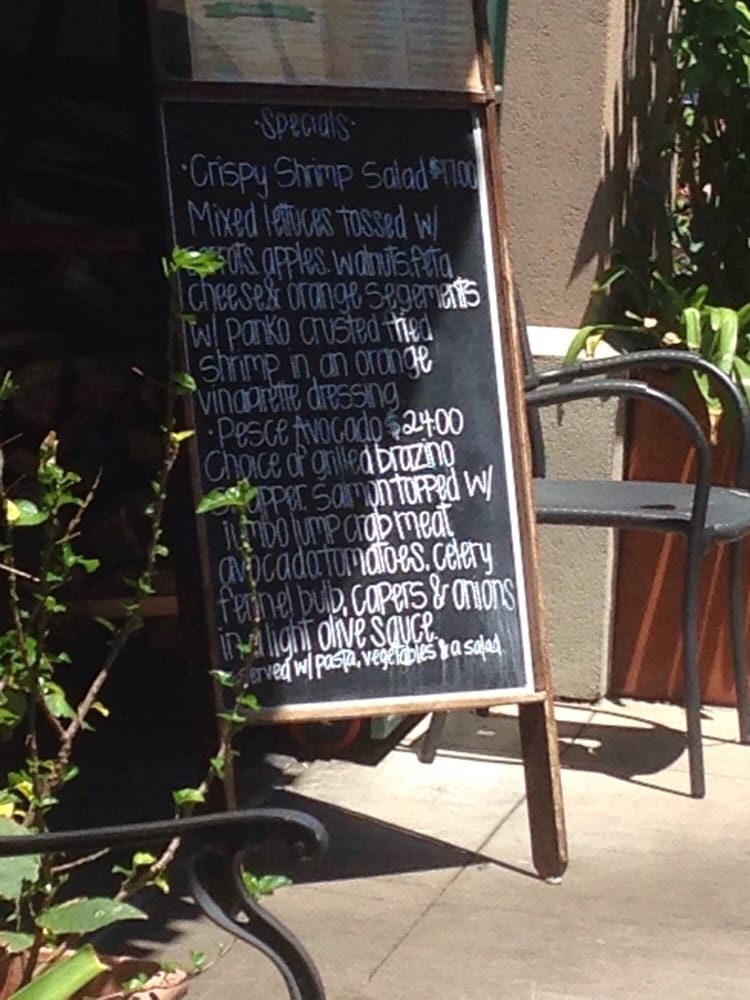 ·Specials·
·Crispy Shrimp Salad $17.00
Mixed lettuces tossed w/
carrots, apples, walnuts, feta
cheese & orange segements
w/ panko crusted fried
shrimp in an orange
vinaigrette dressing
·Pesce Avocado $24.00
Choice of grilled branzino
Salmon topped w/
jumbo lump crab meat
avocado, tomatoes, celery
fennel bulb, capers & onions
in a light olive sauce.
served w/ pasta, vegetables & a salad.